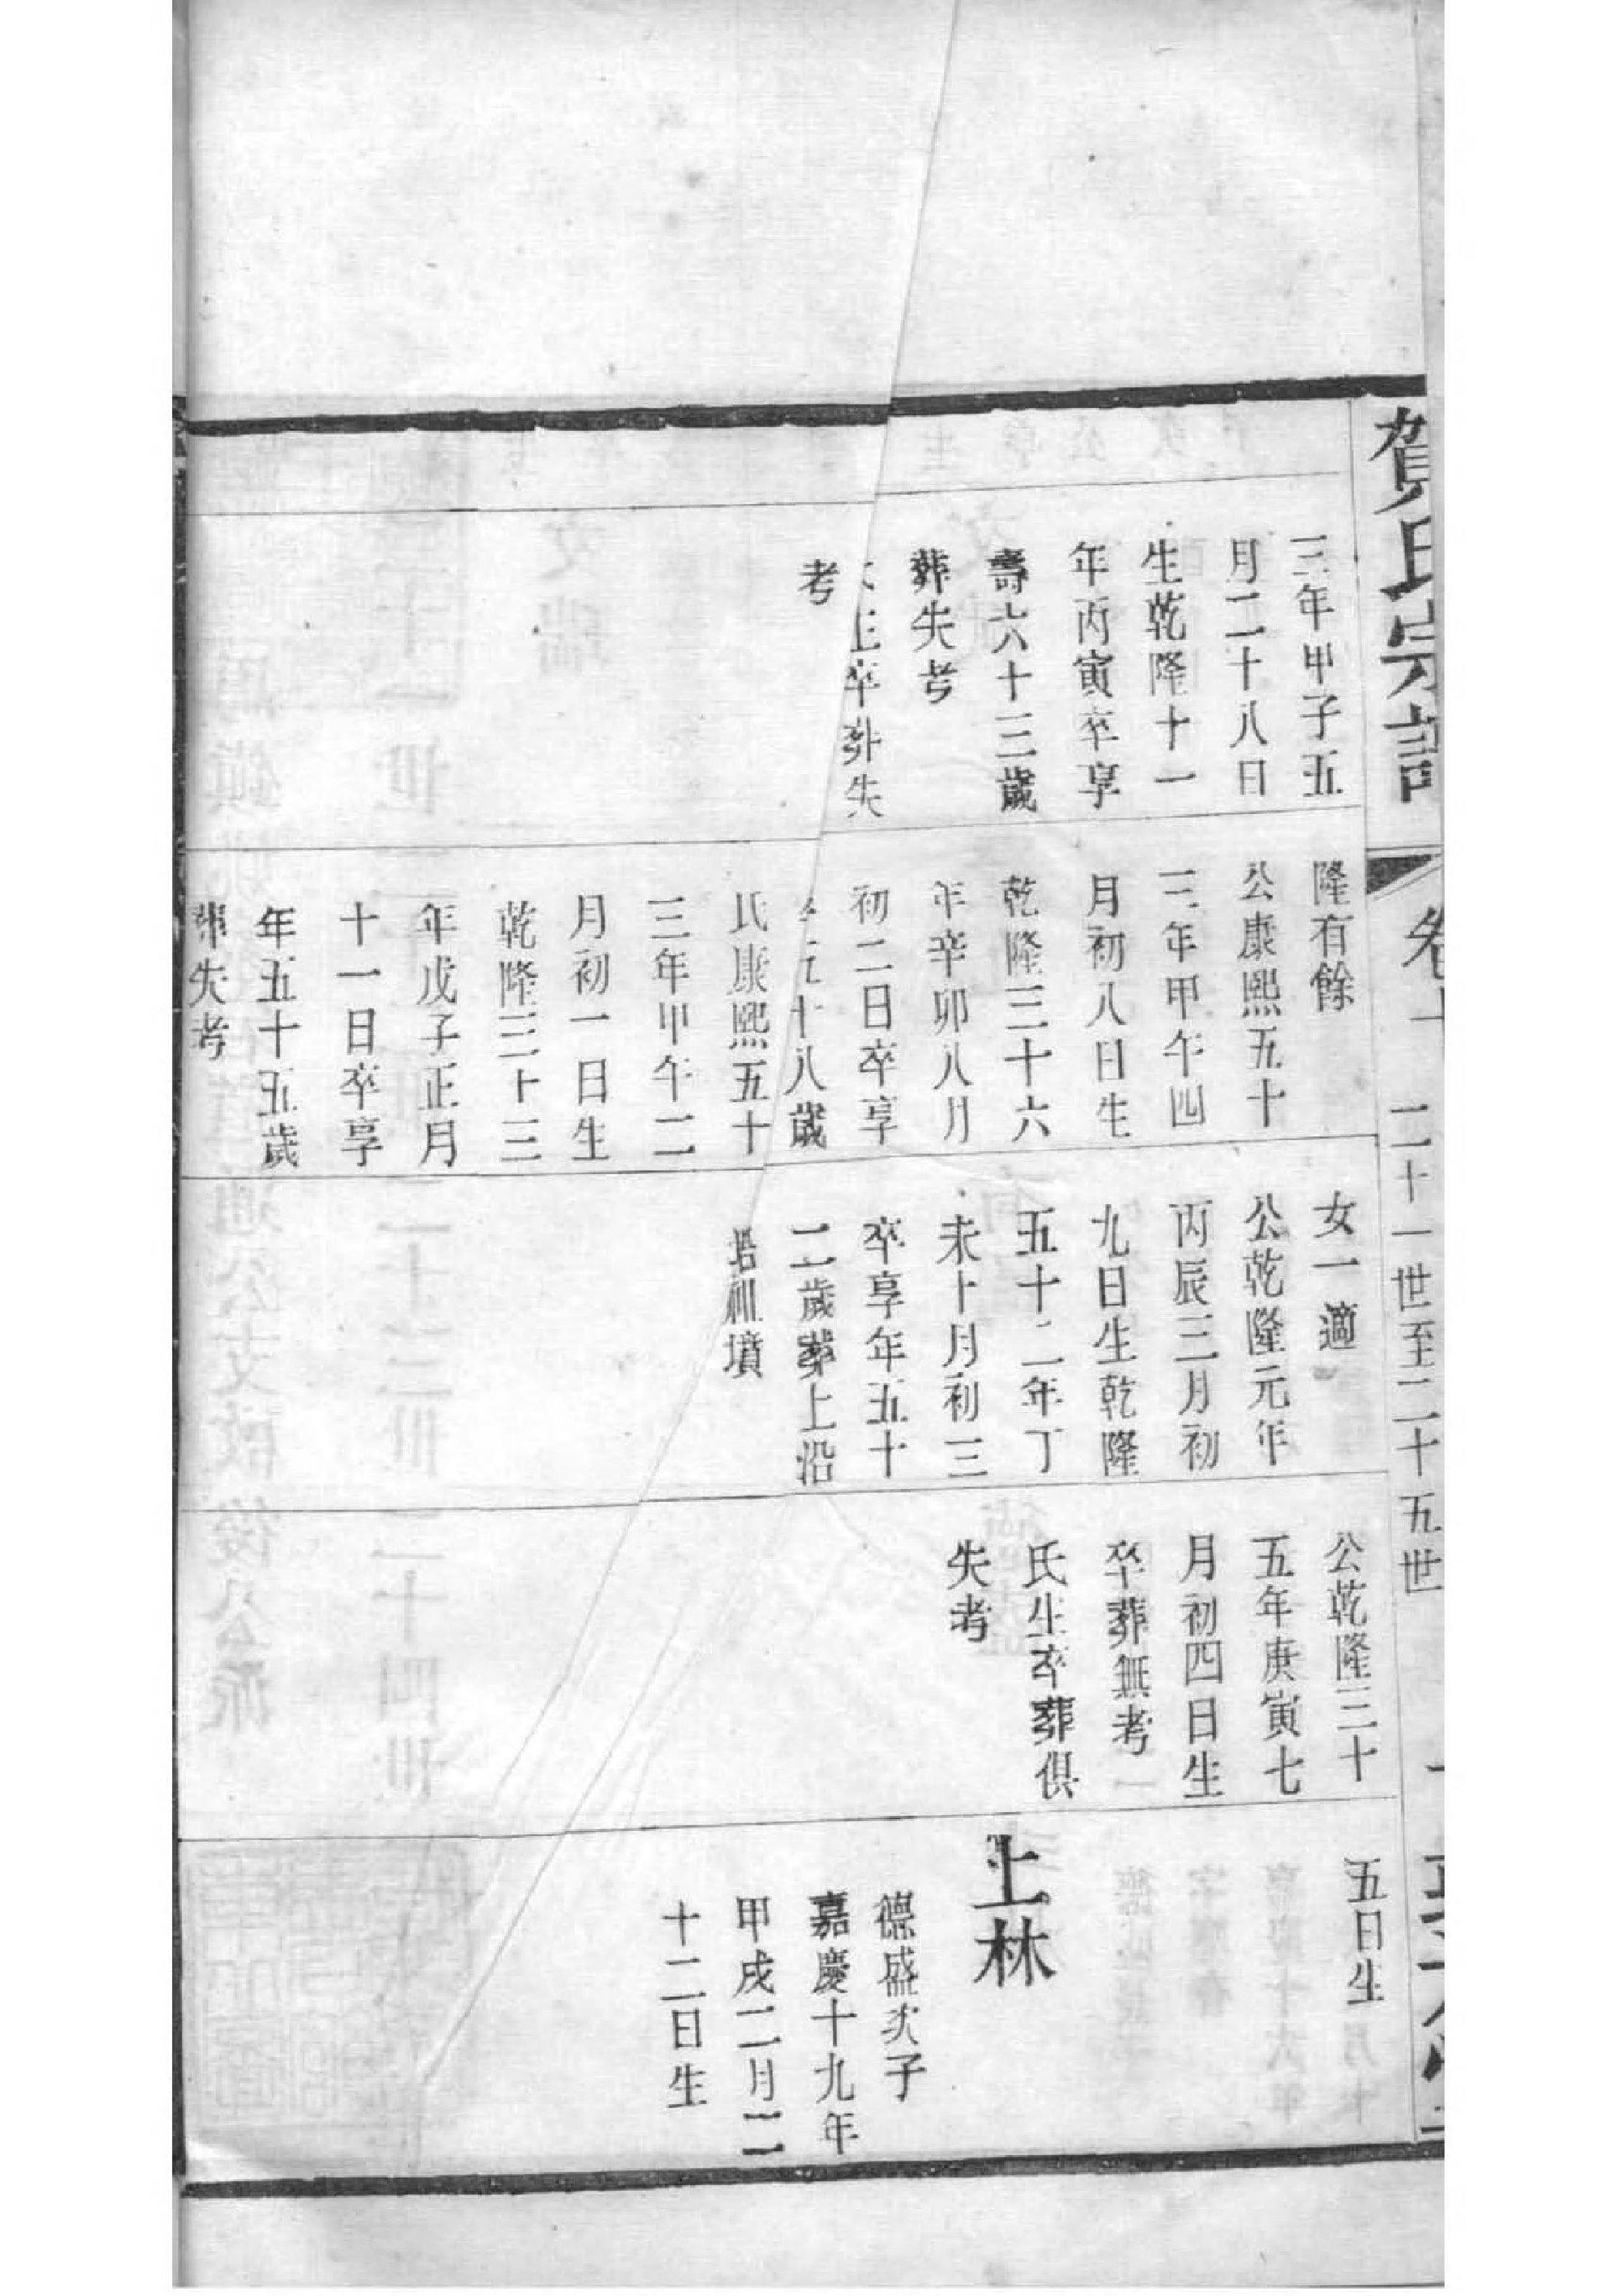 賀氏宗譜
卷十
二十一世至二十五世
三年甲子五
月二十八日
生乾隆十一
年丙寅卒享
壽六十三歲
葬失考
生卒葬失
考
隆有餘
公康熙五十
三年甲午四
月初八日生
乾隆三十六
年辛卯八月
初二日卒享
年五十八歲
氏康熙五十
三年甲午二
月初一日生
乾隆三十三
年戊子正月
十一日卒享
年五十五歲
葬失考
女一適
公乾隆元年
丙辰三月初
九日生乾隆
五十二年丁
未十月初三
卒享年五十
二歲葬上沿
墳
公乾隆三十
五年庚寅七
月初四日生
卒葬無考
氏生卒葬俱
失考
五日生
上林
德盛次子
嘉慶十九年
甲戌二月二
十二日生